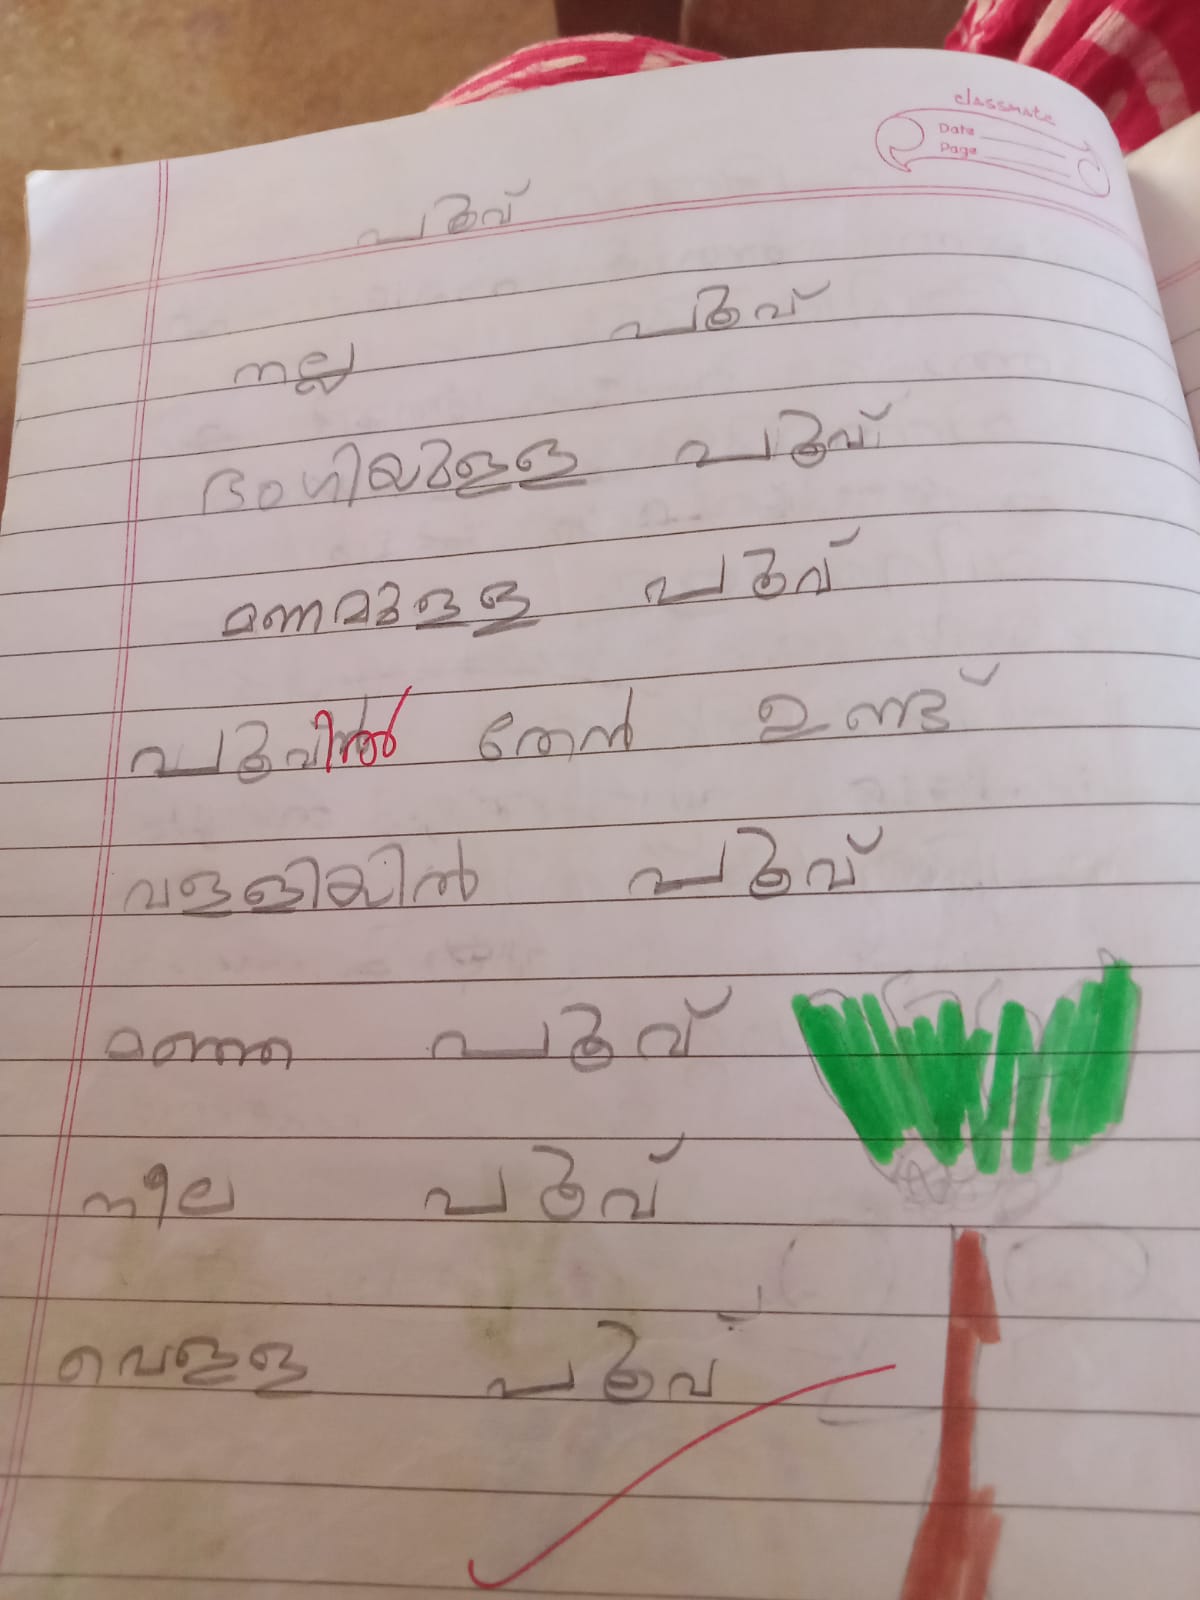 classmate
Date
Page
പൂവ്
നല്ല പൂവ്
ഭംഗിയുള്ള പൂവ്
മണമുള്ള പൂവ്
പൂവിൽ തേൻ ഉണ്ട്
വള്ളിയിൽ പൂവ്
മഞ്ഞ പൂവ്
നീല പൂവ്
വെള്ള പൂവ്